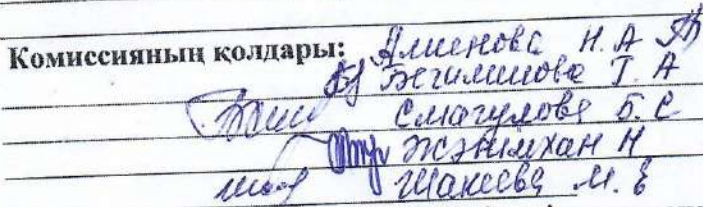 Комиссияның қолдары: Алиенова Н. А
Бегимшова Т. А
Смагулова Б. С
Жәнімхан Н
Шакеева М. Е